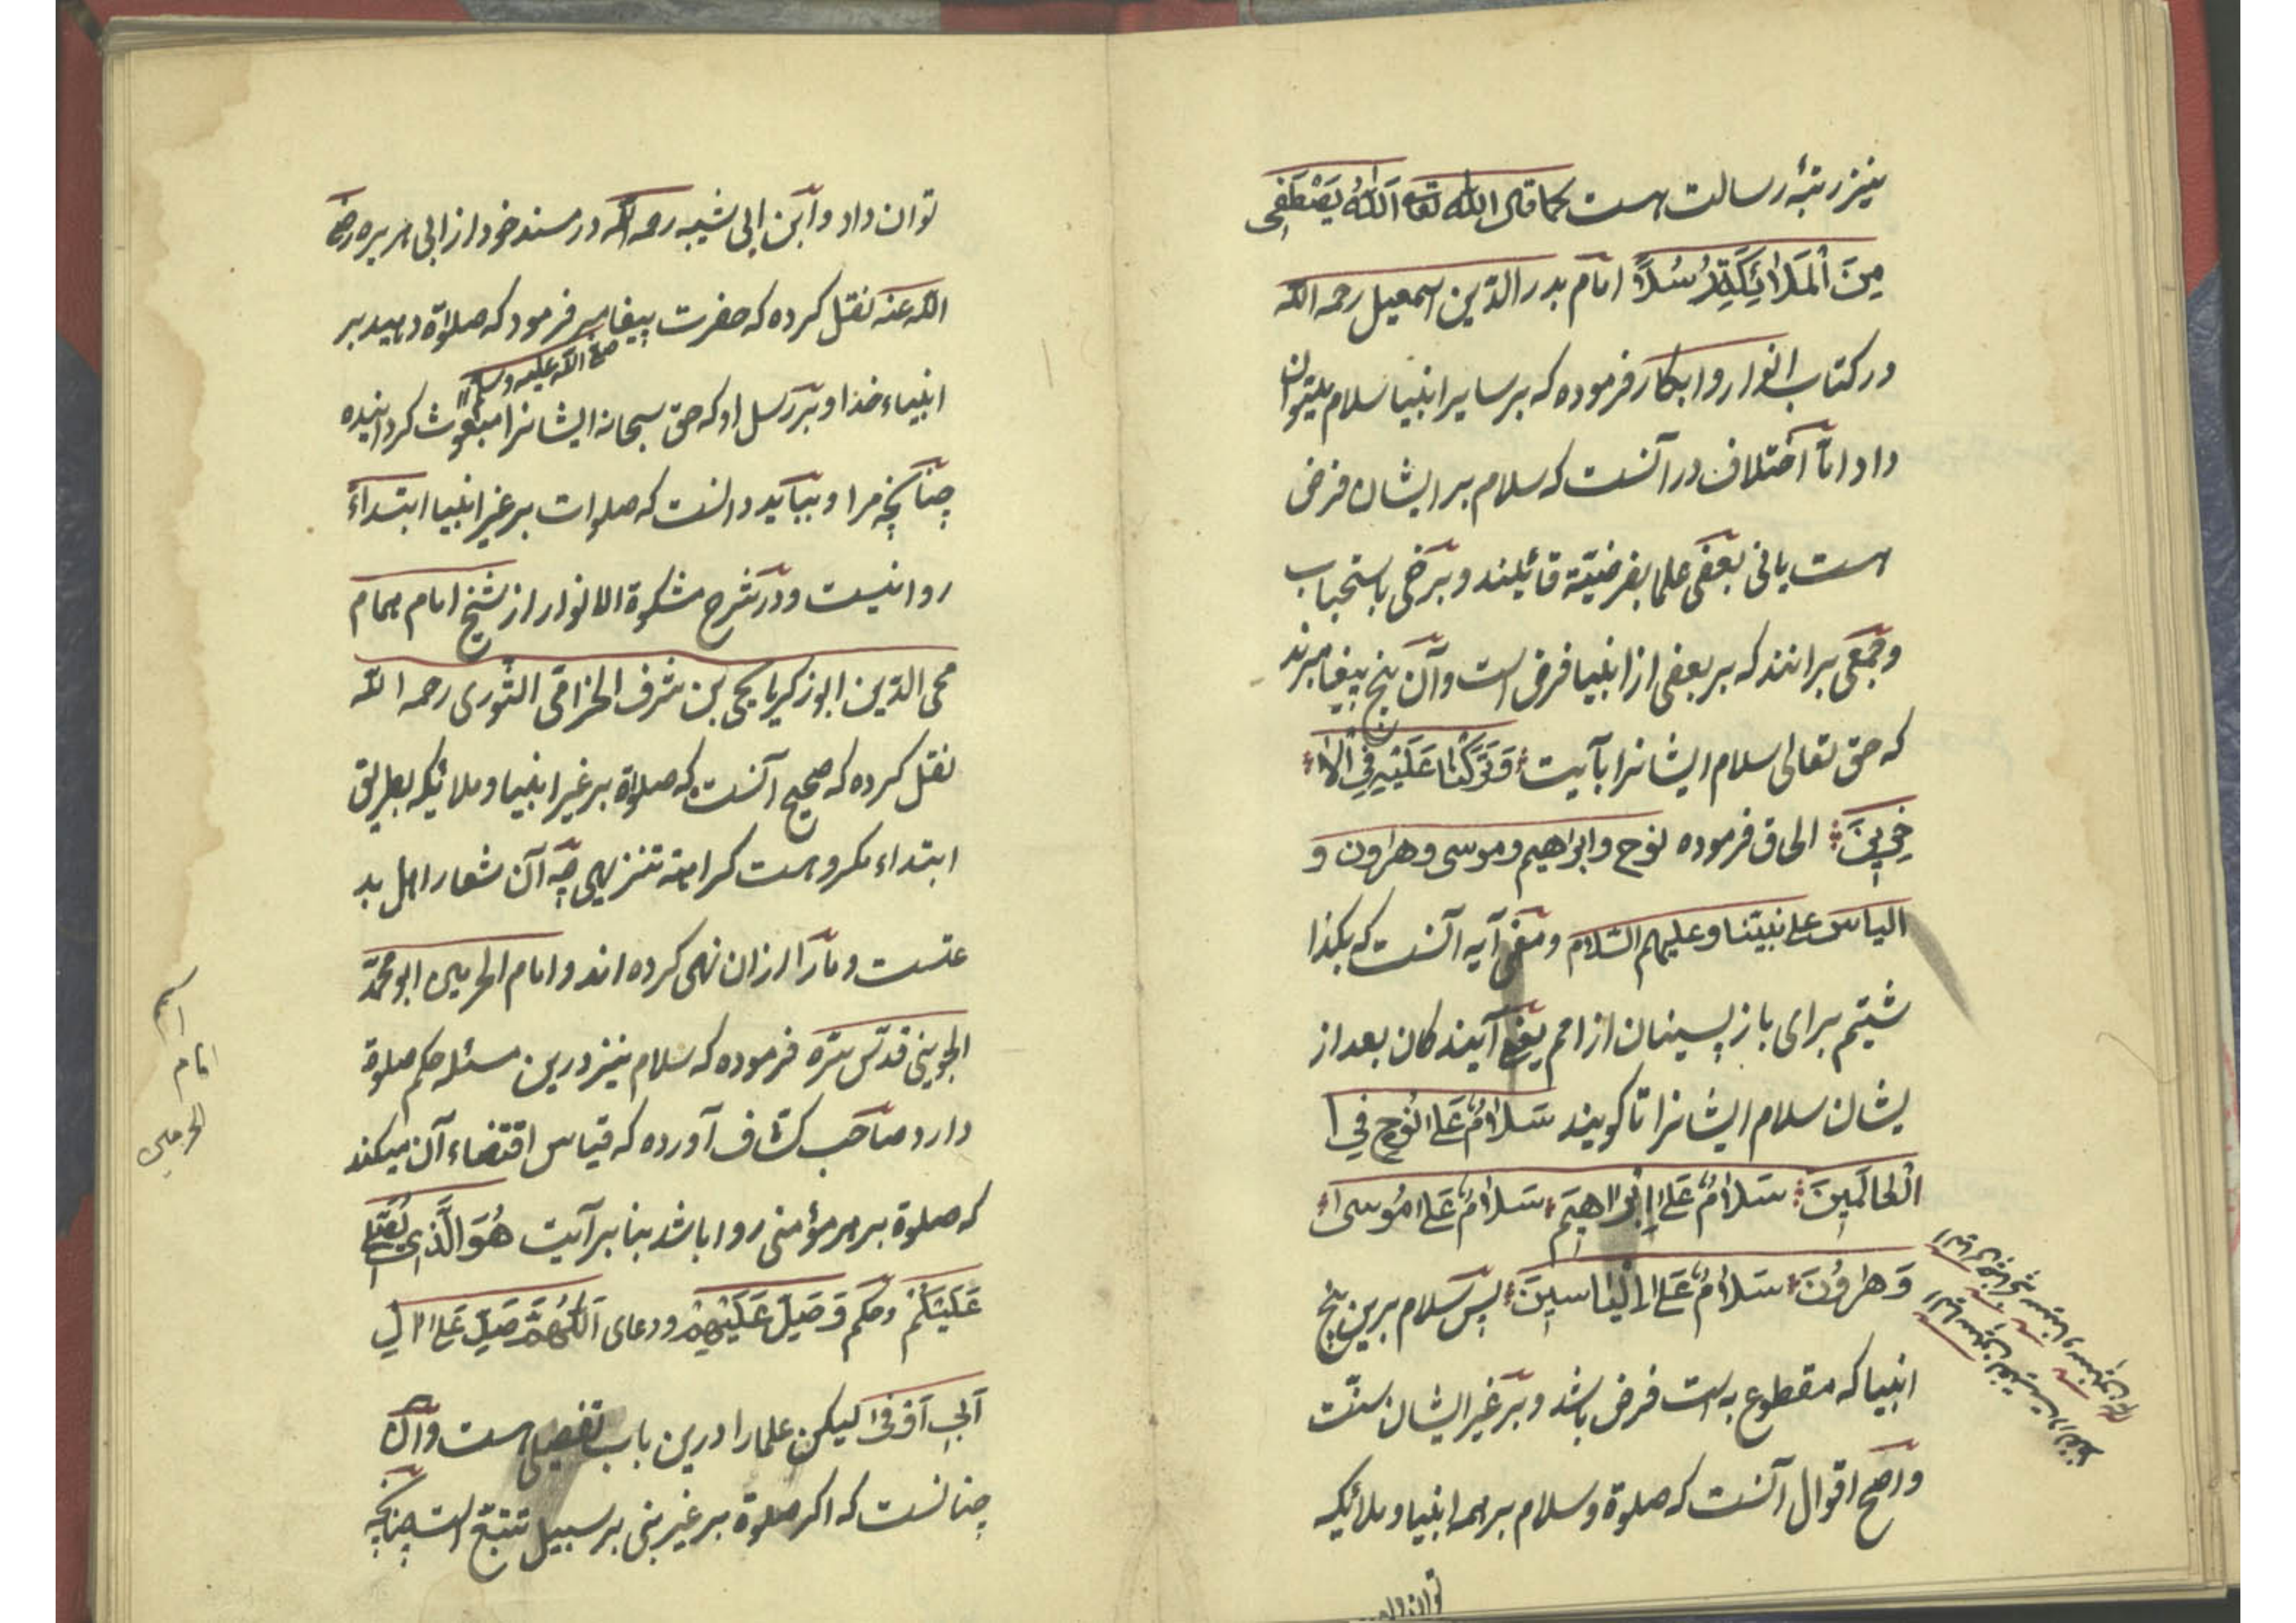 نیز رتبۀ رسالت هست کما قال الله تعا اَللّٰهُ یَصْطَفِی
مِنَ الْمَلٰائِکَةِ رُسُلًا امام بدر الدّین اسمعیل رحمه الله
در کتاب انوار و ابکار فرموده که بر سایر انبیا سلام میتوان
داد امّا اختلاف در آنست که سلام بر ایشان فرض
هست یا نی بعضی علما بفرضیّة قائیلند و برخی باستحباب
و جمعی برانند که بر بعضی از انبیا فرض است و آن پنج پیغامبرند
که حق تعالی سلام ایشانرا بآیت وَتَرَکْنٰا عَلَیْهِ فِی الْاٰ
خِرِینَ الحاق فرموده نوح و ابراهیم و موسی و هرون و
الیاس علی نبیّنا و علیهم السّلام و معنی آیه آنست که بکذا
شتیم برای باز پسینان از امم یعنی آیندکان بعد از
یشان سلام ایشانرا تا کویند سَلٰامٌ عَلیٰ نُوحٍ فِی
الْعٰالَمِینَ سَلٰامٌ عَلیٰ اِبْرٰاهِیمَ سَلٰامٌ عَلیٰ مُوسیٰ
وَهٰرُونَ سَلٰامٌ عَلیٰ اِلْیٰاسِینَ پس سلام برین پنج
انبیا که مقطوع به است فرض باشد و بر غیر ایشان سنّت
و اصحّ اقوال آنست که صلوة و سلام بر همه انبیا و ملائیکه
توان داد
توان داد و ابن ابی شیبه رحمه الله در مسند خود از ابی هریره رضی
الله عنه نقل کرده که حضرت پیغامبر فرمود که صلوٰة دهید بر
صلی الله علیه وسلم
انبیاء خدا و بر رسل او که حق سبحانه ایشانرا مبعوث کردانیده
چنانچه مرا و بباید دانست که صلوات بر غیر انبیا ابتداءً
روا نیست و در شرح مشکوة الانوار از شیخ امام همام
محی الدّین ابو زکریا یحیی بن شرف الخزامی النّوری رحمه الله
نقل کرده که صحیح آنست که صلوٰة بر غیر انبیا و ملائیکه بطریق
ابتداء مکروهست کراهة تنزیهی چه آن شعار اهل بد
عتست و ما را ازان نهی کرده اند و امام الحرمین ابو محمّد
الجوینی قدّس سرّه فرموده که سلام نیز درین مسئله حکم صلوة
دارد صاحب کشّاف آورده که قیاس اقتضاء آن میکند
که صلوة بر هر مؤمنی روا باشد بنا بر آیت هُوَ الَّذِی یُصَلِّی
عَلَیْکُمْ و حکم وَصَلِّ عَلَیْهِمْ و دعای اَللّٰهُمَّ صَلِّ عَلیٰ اٰلِ
اَبِی اَوْفیٰ لیکن علما را درین باب تفصیلی هست و آن
چنانست که اکر صلوة بر غیر نبی بر سبیل تتبّع است چنانچه
اسم
امام
الحرمین